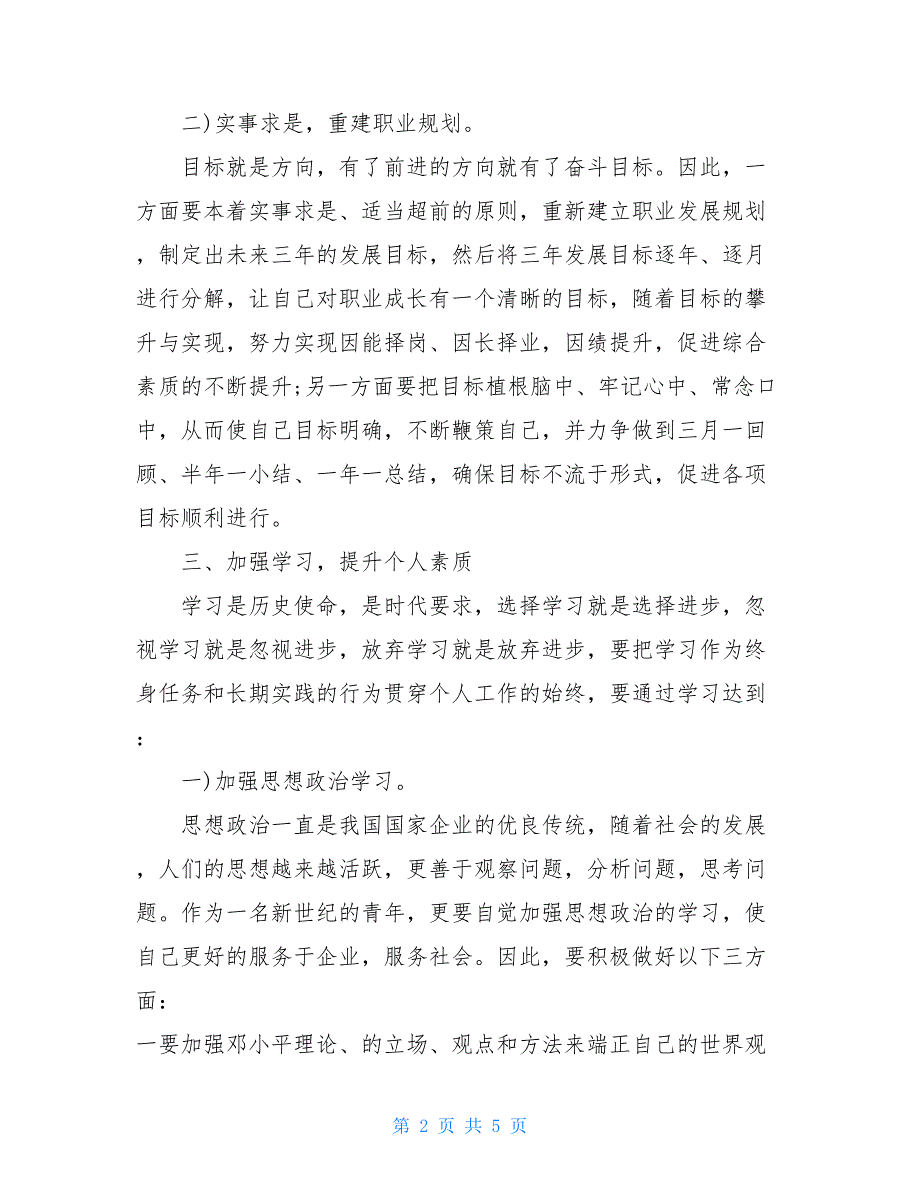 二)实事求是，重建职业规划。
目标就是方向，有了前进的方向就有了奋斗目标。因此，一
方面要本着实事求是、适当超前的原则，重新建立职业发展规划
，制定出未来三年的发展目标，然后将三年发展目标逐年、逐月
进行分解，让自己对职业成长有一个清晰的目标，随着目标的攀
升与实现，努力实现因能择岗、因长择业，因绩提升，促进综合
素质的不断提升;另一方面要把目标植根脑中、牢记心中、常念口
中，从而使自己目标明确，不断鞭策自己，并力争做到三月一回
顾、半年一小结、一年一总结，确保目标不流于形式，促进各项
目标顺利进行。
三、加强学习，提升个人素质
学习是历史使命，是时代要求，选择学习就是选择进步，忽
视学习就是忽视进步，放弃学习就是放弃进步，要把学习作为终
身任务和长期实践的行为贯穿个人工作的始终，要通过学习达到
：
一)加强思想政治学习。
思想政治一直是我国国家企业的优良传统，随着社会的发展
，人们的思想越来越活跃，更善于观察问题，分析问题，思考问
题。作为一名新世纪的青年，更要自觉加强思想政治的学习，使
自己更好的服务于企业，服务社会。因此，要积极做好以下三方
面：
一要加强邓小平理论、的立场、观点和方法来端正自己的世界观
第 2 页 共 5 页